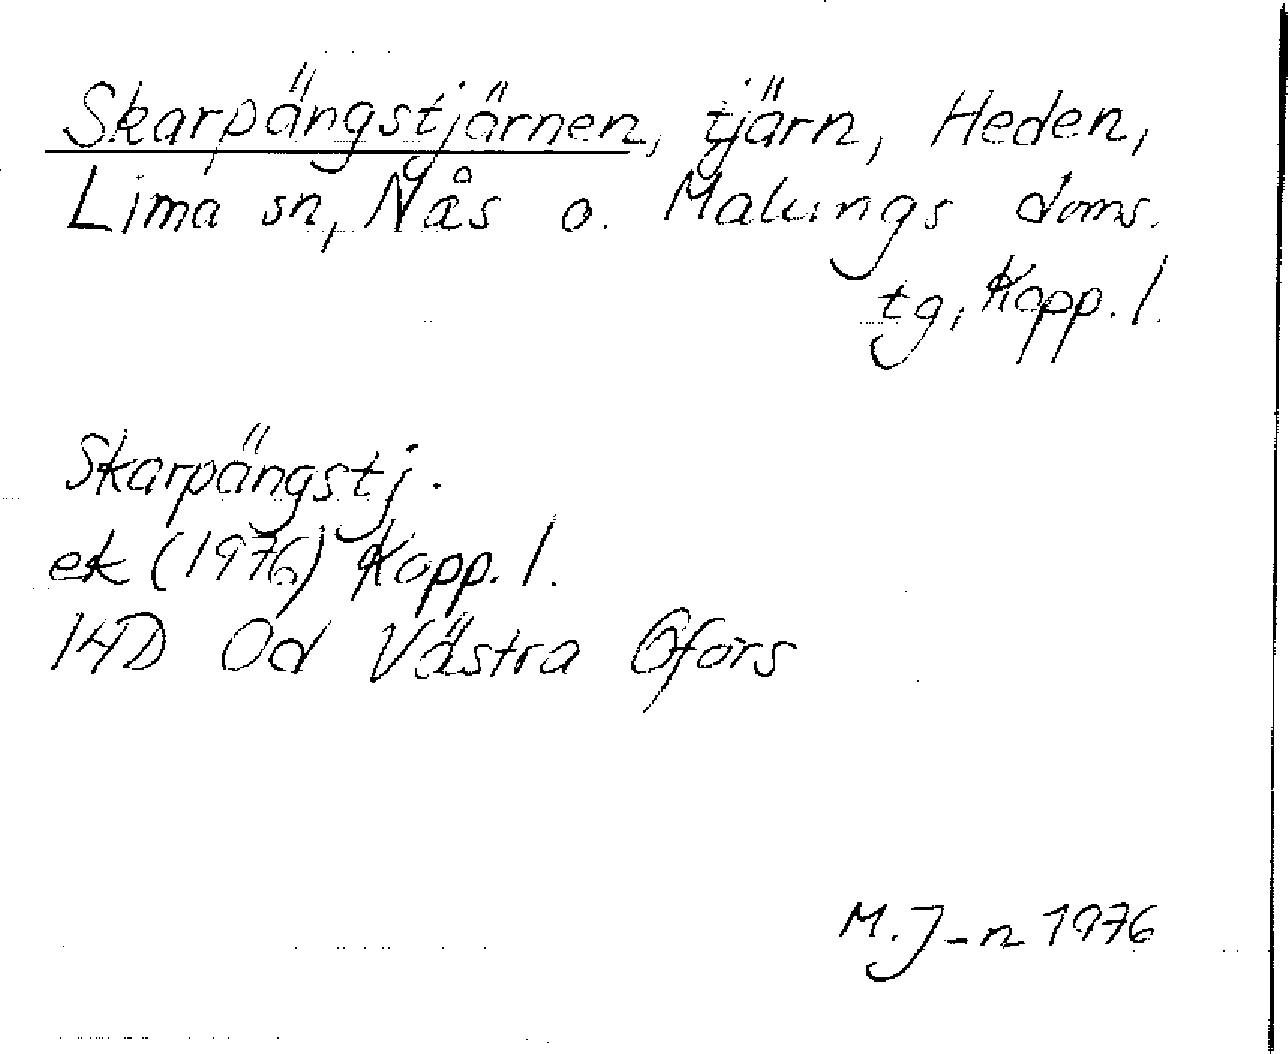 Skarpängstjärnen, tjärn, Heden,
Lima sn, Nås o. Malungs doms.
tg, Kopp. l.
Skarpängstj.
ek (1976) Kopp. l.
14D 0d Västra Ofors
M. J-n 1976